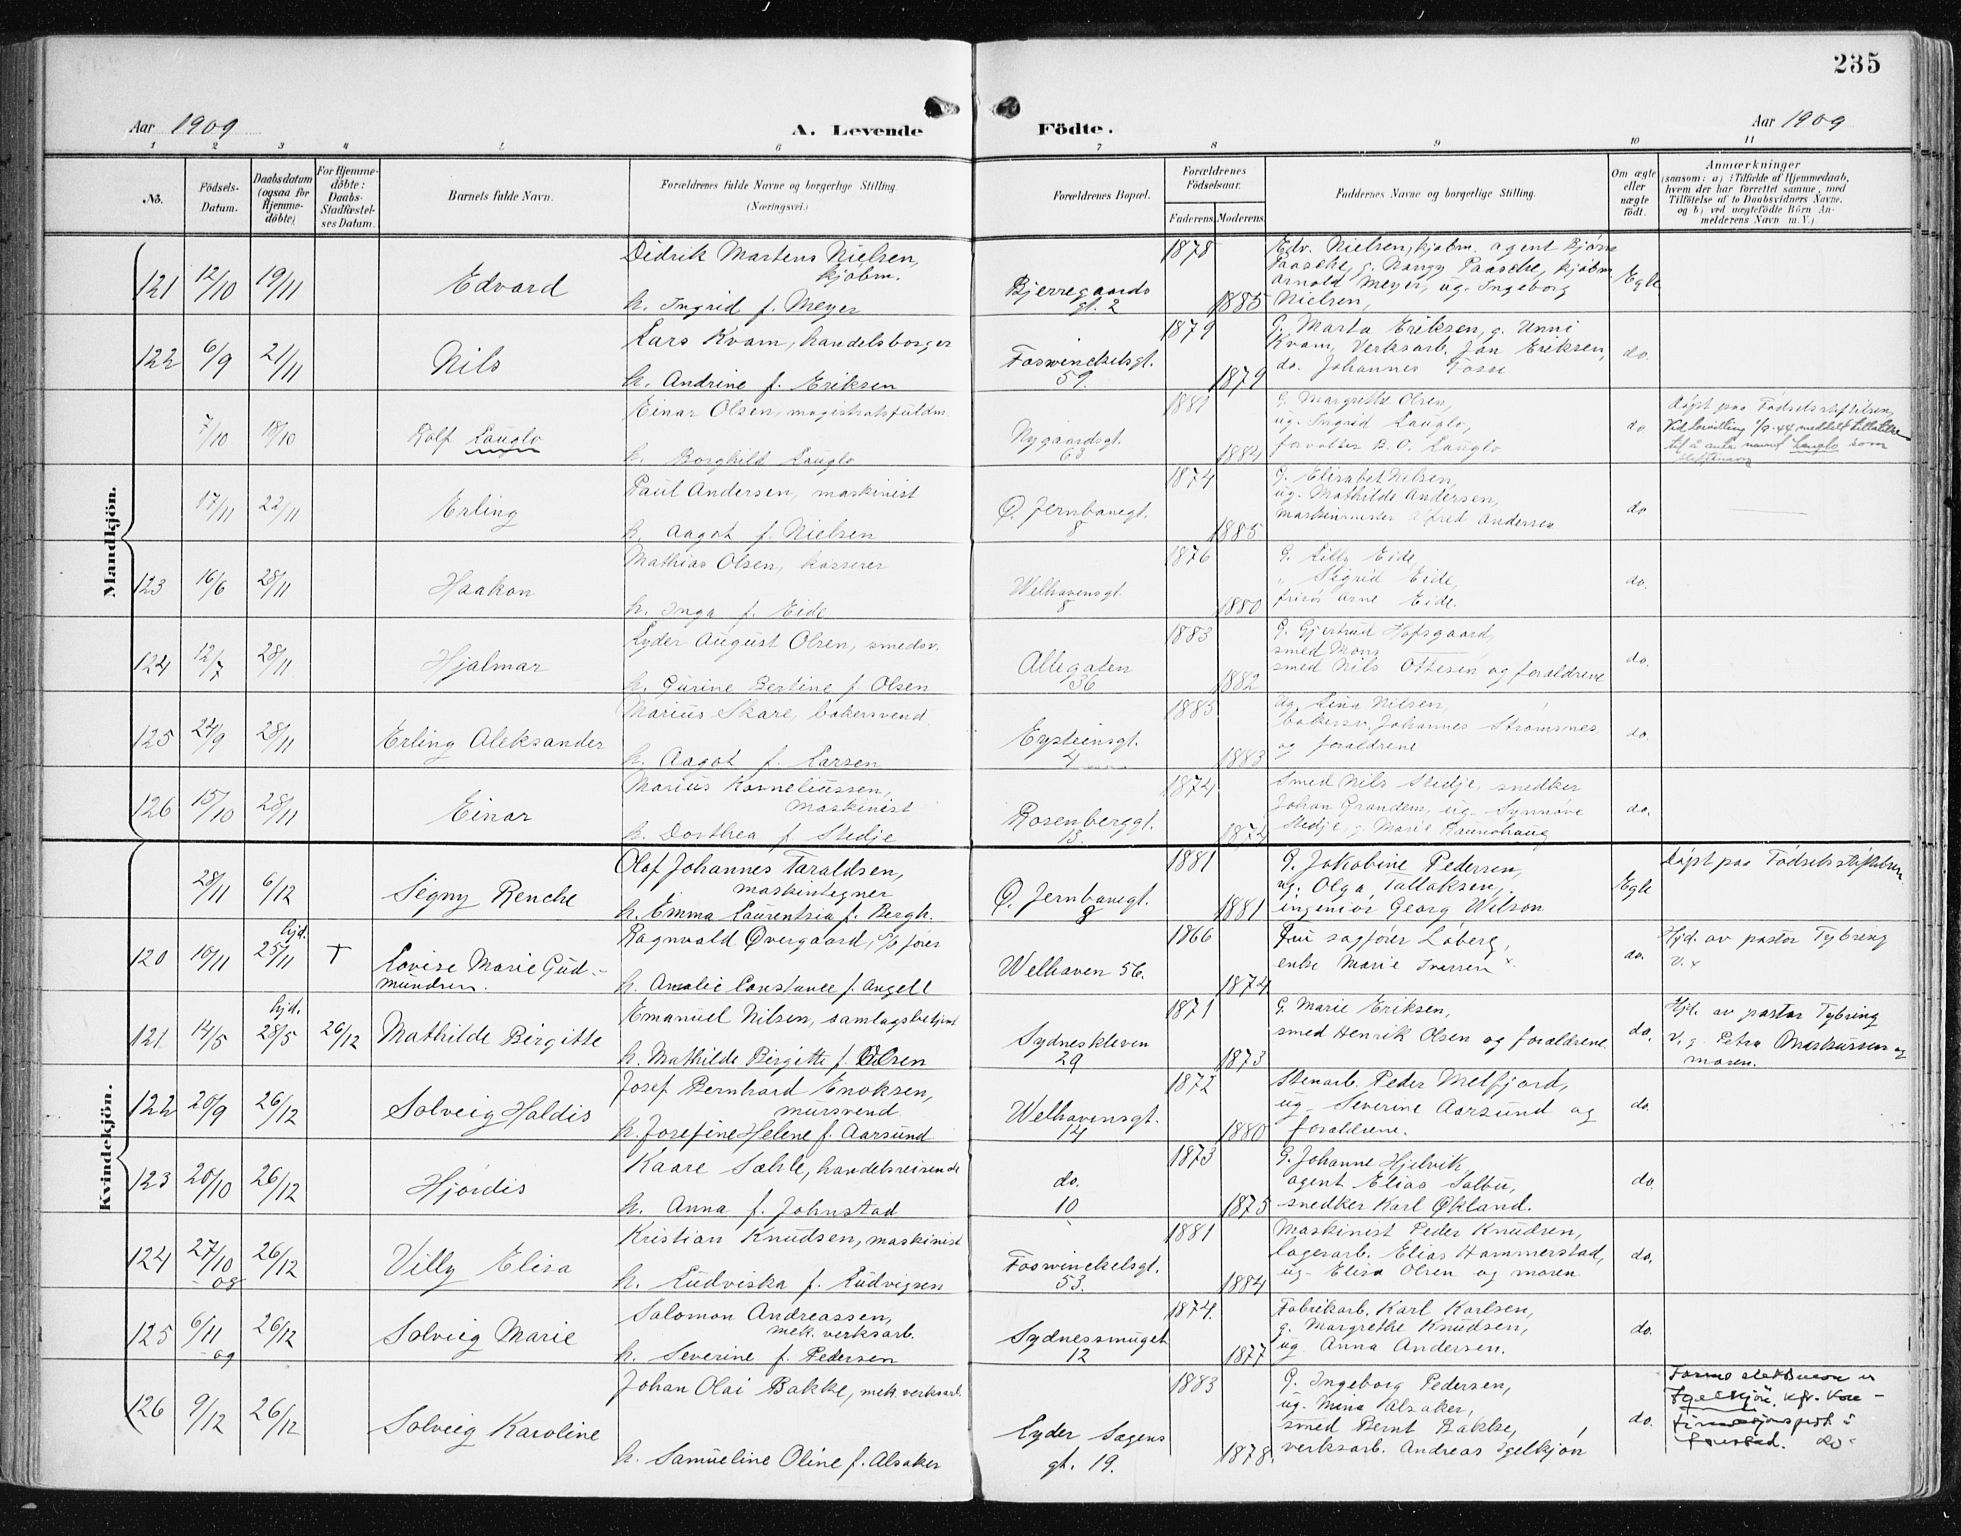 235
Aar 1909 A. Levende Födte. Aar 1909
1 2 3 4 5 6 7 8 9 10 11
No. Födsels-Datum. Daabsdatum (ogsaa for Hjemme-döbte) For Hjemme-döbte: Daabs-Stadfæstel-ses Datum. Barnets fulde Navn. Forældrenes fulde Navne og borgerlige Stilling. (Næringsvei.) Forældrenes Bopæl. Forældrenes Födselsaar. Faderens Moderens Faddernes Navne og borgerlige Stilling. Om ægte eller uægte födt. Anmærkninger (saasom: a) i Tilfælde af Hjemmedaab, hvem der har forrettet samme, med Tilföielse af to Daabsvidners Navne, og b) ved uægtefödte Börn An-melderens Navn m.V.)
Mandkjön.
121 12/10 19/11 Edvard Didrik Martens Nielsen, kjøbm. h. Ingrid f. Meyer Bjerregaards gt. 2 1878 1885 Edv. Nielsen, kjøbm. agent Bjørn Paasche, g. Nanny Paasche, kjøbm Arnold Meyer, ug. Ingeborg Nielsen, Egte
122 6/9 21/11 Nils Lars Kvam, handelsborger h. Andrine f. Eriksen Foswinckelsgt. 59. 1879 1879 G. Marta Eriksen, g. Unni Kvam, Verksarb. Jan Eriksen, do. Johannes Fosse do.
7/10 18/10 Rolf Lauglo Einar Olsen, magistratsfuldm. h. Borghild Lauglo Nygaardsgt. 63 1881 1884 G. Margrethe Olsen, ug. Ingrid Lauglo, forvalter B. O. Lauglo do Døpt paa Fødselsstiftelsen, Ved bevilling 1/9-44 meddelt tillatelse til å anta navnet Lauglo som slektsnavn
17/11 22/11 Erling Paul Andersen, maskinist h. Aagot f. Nielsen Ø. Jernbanegt. 8 1874 1885 G. Elisabet Nilsen, ug. Mathilde Andersen, maskinmester Alfred Andersen do
123 16/6 28/11 Haakon Mathias Olsen, kasserer h. Inga f. Eide Welhavensgt. 8 1876 1880 G. Lilly Eide, " Sigrid Eide, frisør Arne Eide. do.
124 12/7 28/11 Hjalmar Lyder August Olsen, smedsv. h. Gurine Bertine f. Olsen Allegaten 36 1883 1882 G. Gjertrud Hopsgaard, smed Mons smed Nils Ottesen og forældrene do.
125 24/9 28/11 Erling Aleksander Marius Skare, bakersvend. h. Aagot f. Larsen Eysteinsgt. 4 1885 1883 Ug. Lina Nilsen, bakersv. Johannes Strømsnes og forældrene do.
126 15/10 28/11 Einar Marius Korneliussen, maskinist h. Dorthea f. Stedje Rosenberggt. 13. 1874 1874 Smed Nils Stedje, snedker Johan Grandem, ug. Synnøve Stedje, g. Marie do.
Kvindekjön.
28/11 6/12 Signy Renche Olaf Johannes Taraldsen, maskintegner h. Emma Laurentzia f. Bergh. Ø. Jernbanegt. 8 1881 1881 G. Jakobine Pedersen, ug. Olga Tallaksen, ingeniør Georg Wilson Egte Døpt paa Fødselsstiftelsen
120 10/11 hjd. 25/11 † Lovise Marie Gud-mundsen. Ragnvald Øvergaard, s/s fører h. Amalie Constance f. Angell Welhaven 56. 1866 1874 Fru sagfører Løberg, enke Marie Iversen x. do. Hjd. av pastor Tybring v. x
121 14/5 hjd. 28/5 26/12 Mathilde Birgitte Emanuel Nilsen, samlagsbetjent h. Mathilde Birgitte f. Olsen Sydneskleven 29 1871 1873 G. Marie Eriksen, smed Henrik Olsen og forældrene. do. Hjd. av pastor Tybring v. g. Petra Markussen og moren.
122 20/9 26/12 Solveig Haldis Josef Bernhard Enoksen, mursvend. h. Josefine Helene f. Aarsund Welhavensgt. 14 1872 1880 Stenarb. Peder Melfjord, ug. Severine Aarsund og forældrene. do.
123 20/10 26/12 Hjørdis Kaare Sæhle, handelsreisende h. Anna f. Johnstad do. 10 1873 1875 G. Johanne Hjelvik, agent Elias Solbu, snedker Karl Økland. do.
124 27/10 09 26/12 Villy Elisa Kristian Knudsen, maskinist h. Ludviska f. Ludvigsen Foswinckelsgt. 53. 1881 1884 Maskinist Peder Knudsen, lagerarb. Elias Hammerstad, ug. Elisa Olsen og moren do.
125 6/11 09 26/12 Solveig Marie Salomon Andreassen, mek. verksarb. h. Severine f. Pedersen Sydnessmuget 12 1874. 1877 Fabrikarb. Karl Karlsen, g. Margrethe Knudsen, ug. Anna Andersen. do.
126 9/12 26/12 Solveig Karoline Johan Olai Bakke, mek. verksarb. h. Samueline Oline f. Alsaker Lyder Sagens gt. 19. 1883 1878. G. Ingeborg Pedersen, ug. Mina Alsaker, smed Bernt Bakke, verksarb. Andreas Igelkjøn do. er Igelkjön, kfr.